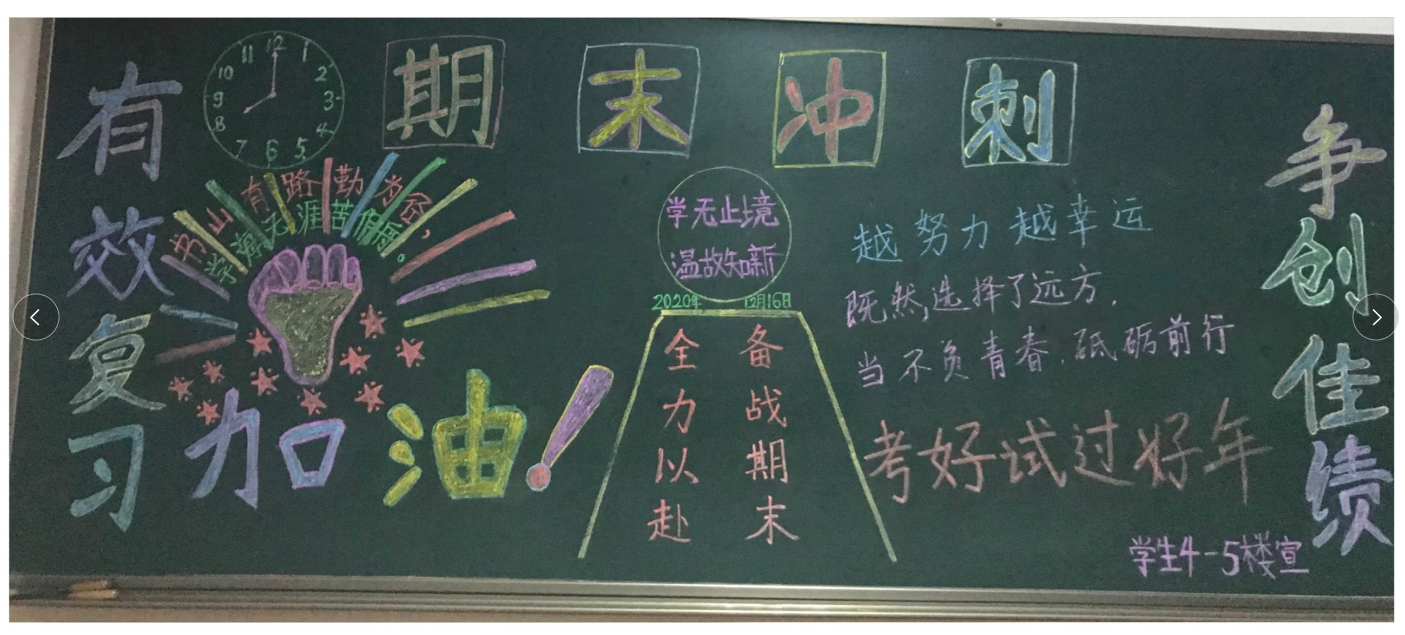 期末冲刺
有效复习
12
1
2
3
4
5
6
7
8
9
10
11
书山有路勤为径,
学海无涯苦作舟。
加油!
学无止境
温故知新
2020年 12月16日
全力以赴
备战期末
越努力越幸运
既然选择了远方,
当不负青春,砥砺前行
考好试过好年
争创佳绩
学生4-5楼宣